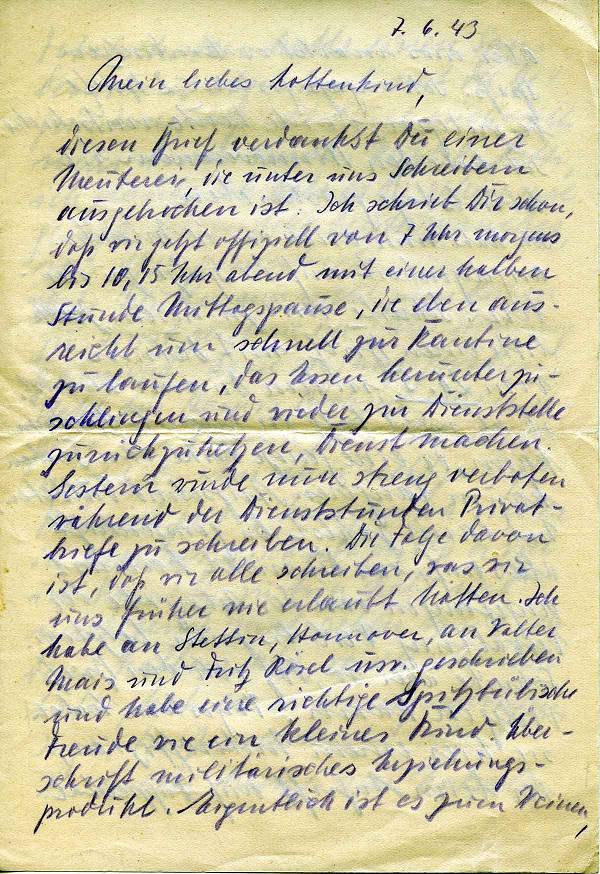 7. 6. 43
Mein liebes Lottenkind,
diesen Brief verdankst Du einer
Meuterei, die unter uns Schreibern
ausgebrochen ist. Ich schrieb Dir schon,
daß wir jetzt offiziell von 7 Uhr morgens
bis 10,15 Uhr abend mit einer halben
Stunde Mittagspause, die eben aus-
reicht um schnell zur Kantine
zu laufen, das Essen herunterzu-
schlingen und wieder zur Dienststelle
zurückzuhetzen, Dienst machen.
Gestern wurde nun streng verboten
während der Dienststunden Privat-
briefe zu schreiben. Die Folge davon
ist, daß wir alle schreiben, was wir
uns früher nie erlaubt hatten. Ich
habe an Stettin, Hannover, an Walter
Mais und Fritz Rösel usw. geschrieben
und habe eine richtige Spitzbübische
Freude wie ein kleines Kind. Über-
schrift militärisches Erziehungs-
produkt. Eigentlich ist es zum Weinen,